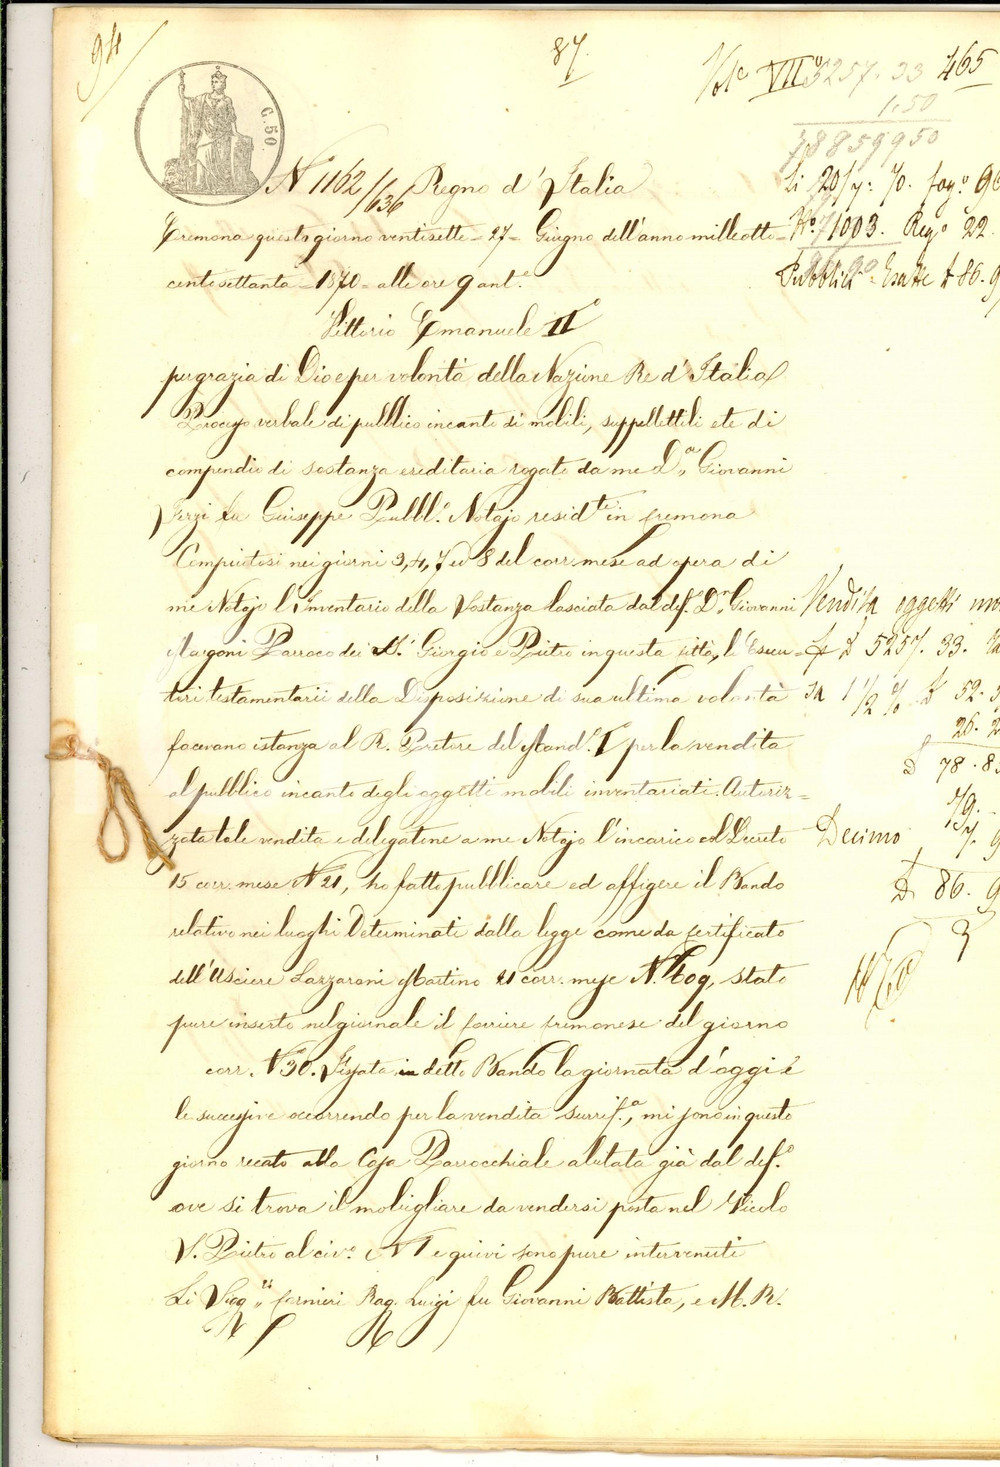 94
87
Vol. VII° 3257.33 465
1.50
C. 50.
N 1162/636 Regno d'Italia
Li 20/7: 70. fog.°
Cremona questo giorno ventisette = 27 = Giugno dell'anno milleotto=
N.° 1003. Reg.° 22.
centosettanta = 1870 = alle ore 9 ant.e
Pubblici = Esatte £ 86.9
Vittorio Emanuele II°
per grazia di Dio e per volontà della Nazione Re d'Italia
Processo verbale di pubblico incanto di mobili, suppellettili etc di
compendio di sostanza ereditaria rogato da me D.r Giovanni
fu Giuseppe Pubbl.° Notajo resid.te in Cremona
Compiutosi nei giorni 3, 4, 7 ed 8 del corr. mese ad opera di
me Notajo l'Inventario della Sostanza lasciata dal def.° D.r Giovanni
Vendita oggetti mo
Margoni Parroco dei SS.i Giorgio e Pietro in questa città, li Esecu=
£ 5257.33.
tori testamentarii della Disposizione di sua ultima volontà
sa 1 1/2 % £ 52.
facevano istanza al R. Pretore del Mand.° I° per la vendita
26.2
al pubblico incanto degli oggetti mobili inventariati. Autoriz=
£ 78.8
79.
zata tale vendita e delegatone a me Notajo l'incarico col Decreto
Decimo 7.9
15 corr. mese N° 21, ho fatto pubblicare ed affigere il Bando
£ 86.9
relativo nei luoghi Determinati dalla legge come da certificato
dell'Usciere Lazzaroni Martino 21 corr. mese N.° 609, stato
pure inserto nel giornale il Corriere Cremonese del giorno
corr. N° 50. Fissata in detto Bando la giornata d'oggi e
le successive occorrendo per la vendita surrif.a, mi sono in questo
giorno recato alla Casa Parrocchiale abitata già dal def.°
ove si trova il mobigliare da vendersi posta nel Vicolo
S. Pietro al civ.° N° 1 e quivi sono pure intervenuti
Li Sigg.ri Cornieri Rag. Luigi fu Giovanni Battista, e M. R.